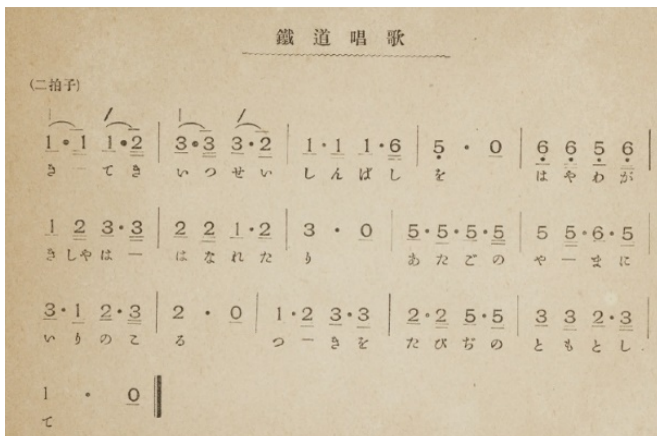 鐵道唱歌
(二拍子)
1・1 1・2 | 3・3 3・2 | 1・1 1・6 | 5 ・ 0 | 6 6 5 6 |
き ー て き い つ せ い し ん ば し を は や わ が
1 2 3・3 | 2 2 1・2 | 3 ・ 0 | 5・5・5・5 | 5 5・6・5
き しや は ー は な れ た り あ た ご の や ー ま に
3・1 2・3 | 2 ・ 0 | 1・2 3・3 | 2・2 5・5 | 3 3 2・3 |
い り の こ る つ ー き を た び ぢ の と も と し
1 ・ 0
て